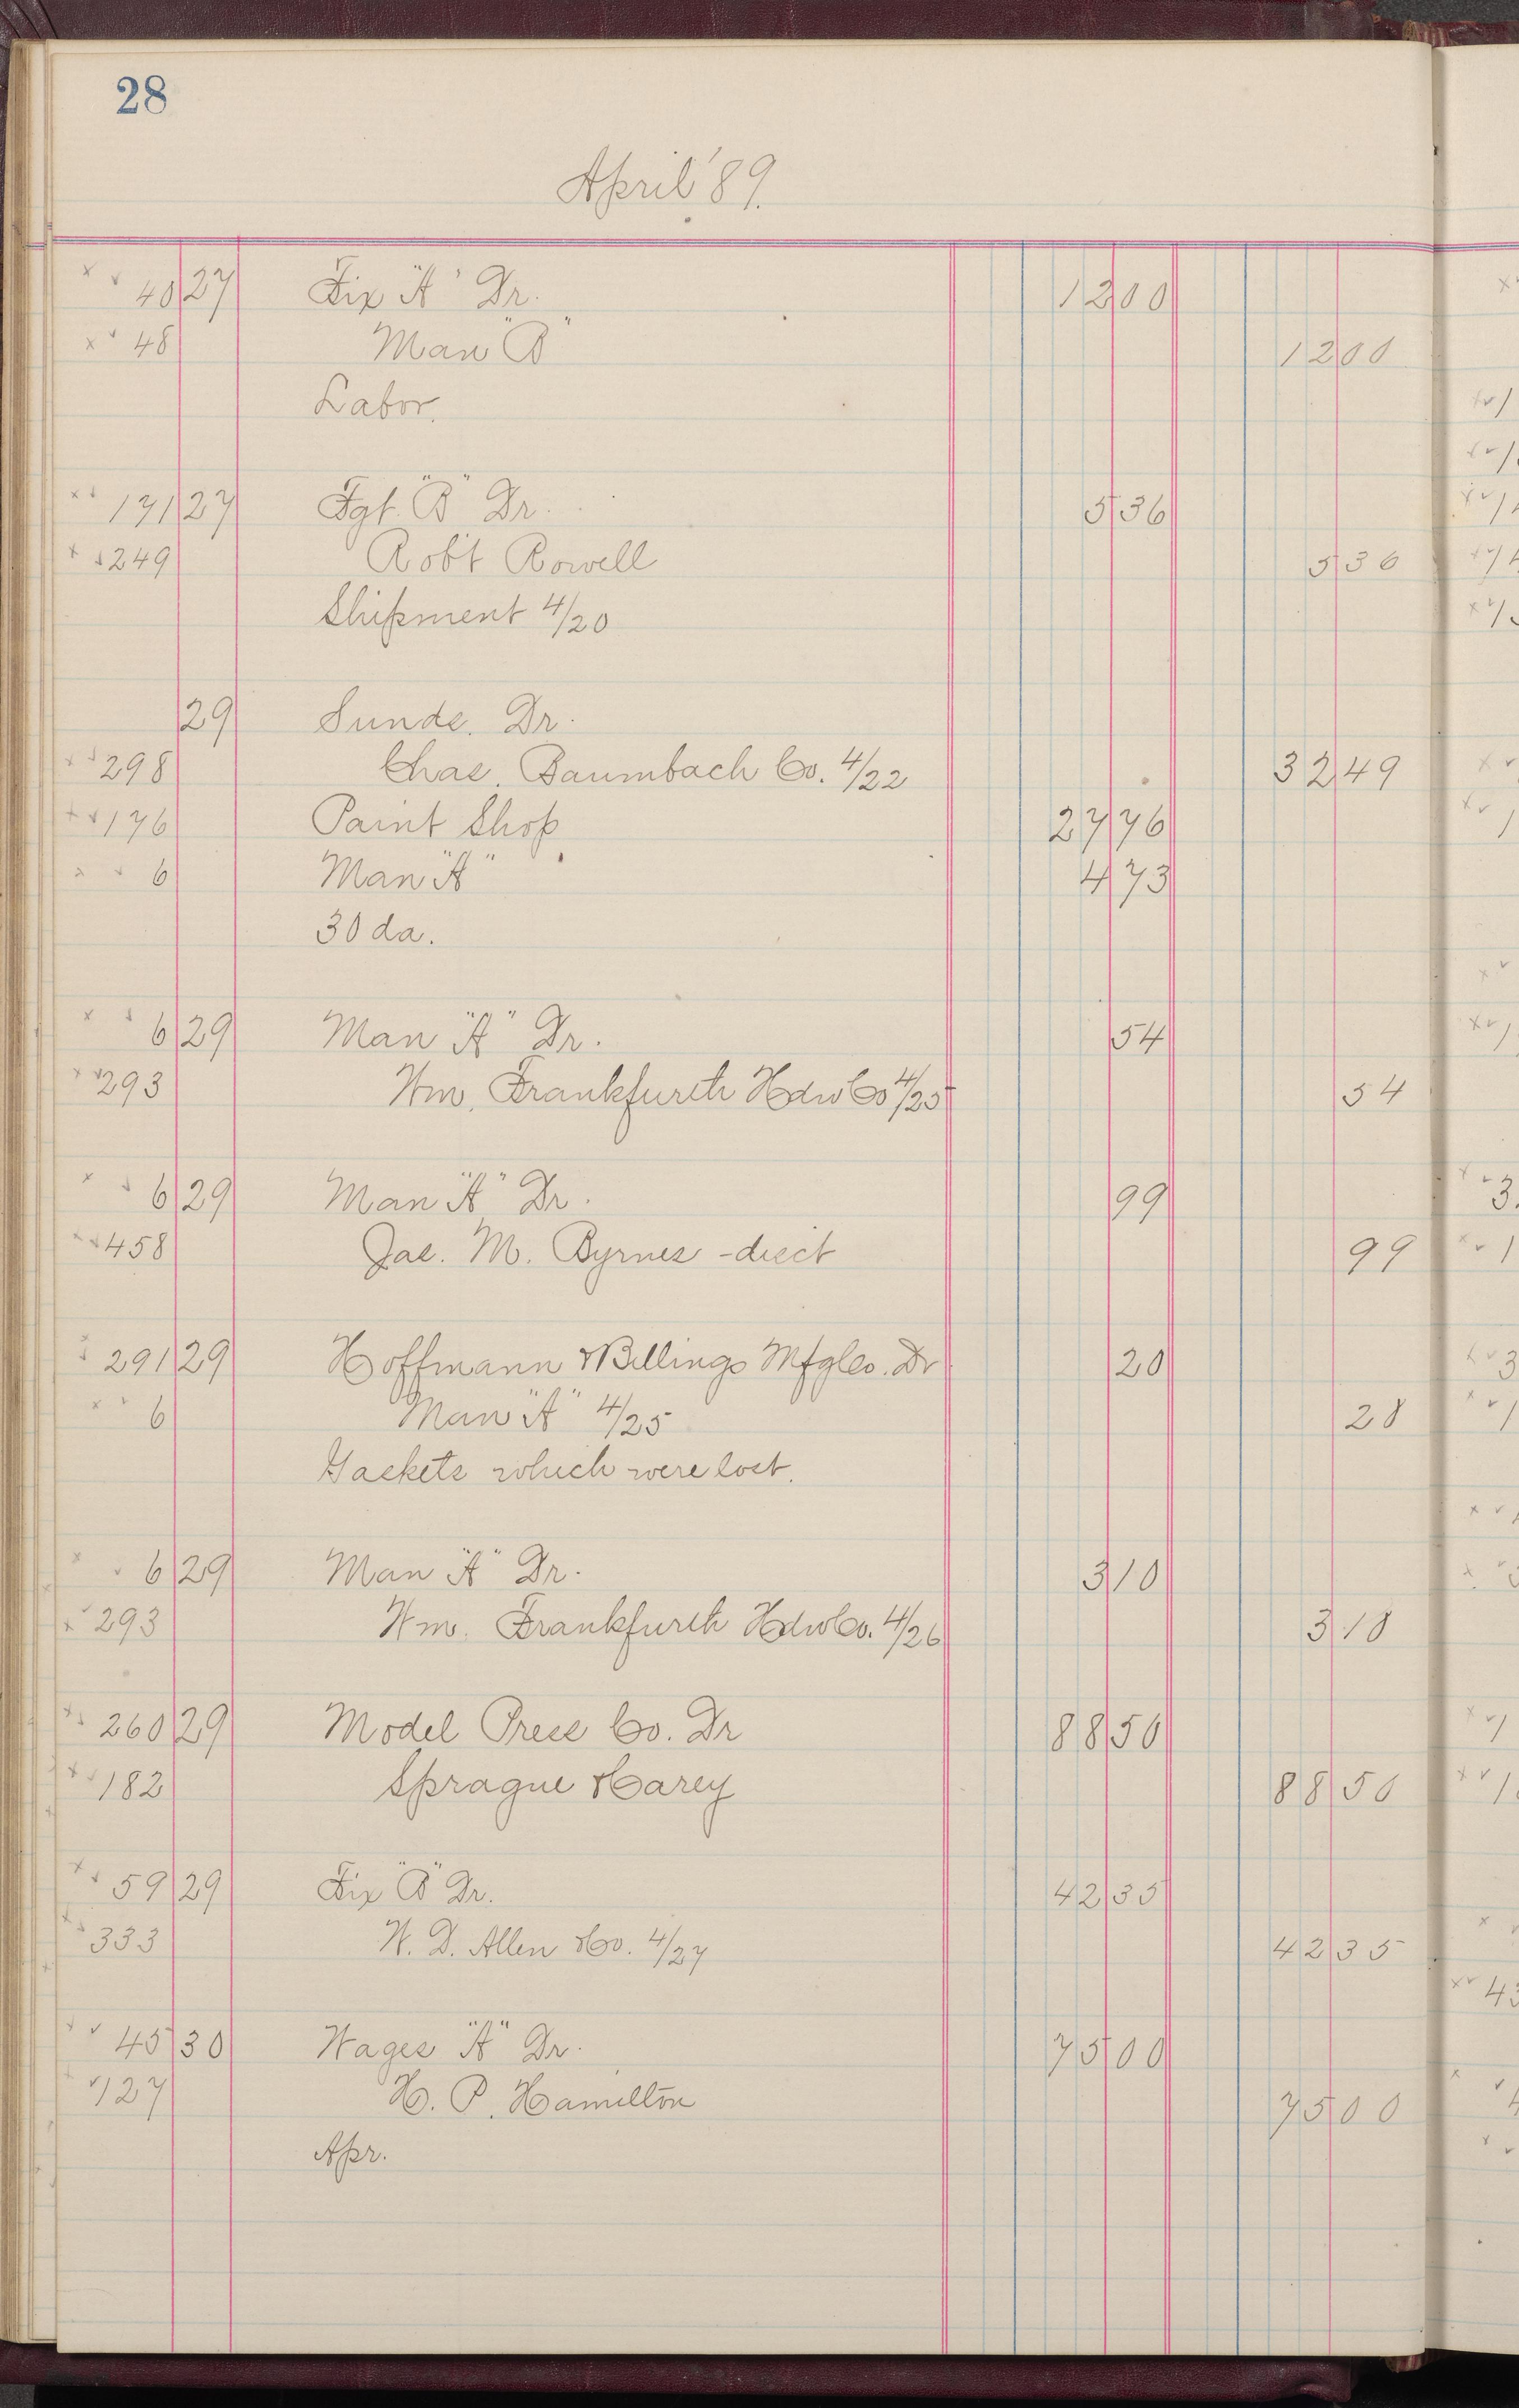 28
April '89.
40 27 Fix "A" Dr. 12 00
48 Man "B" 12 00
Labor.
171 27 Fgt. "B" Dr. 5 36
249 Rob't Rowell 5 36
Shipment 4/20
29 Sunds. Dr.
298 Chas. Baumbach Co. 4/22 32 49
176 Paint Shop 27 76
6 Man "A" 4 73
30 da.
6 29 Man "A" Dr. 54
293 Wm. Frankfurth Hdw Co 4/25 54
6 29 Man "A" Dr. 99
458 Jas. M. Byrnes - disct 99
291 29 Hoffmann & Billings Mfg Co. Dr 20
6 Man "A" 4/25 20
Gaskets which were lost.
6 29 Man "A" Dr. 3 10
293 Wm. Frankfurth Hdw Co. 4/26 3 10
260 29 Model Press Co. Dr 88 50
182 Sprague & Carey 88 50
59 29 Fix "B" Dr. 42 35
333 W. D. Allen & Co. 4/27 42 35
45 30 Wages "A" Dr. 75 00
127 H. P. Hamilton 75 00
Apr.